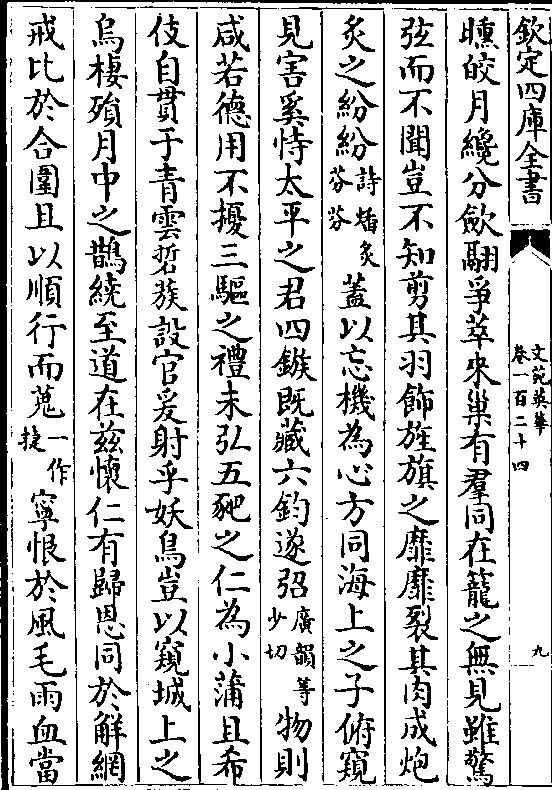 欽定四庫全書
文苑英華
卷一百二十四
九
曛皎月纔分歛翮爭萃來巢有羣同在籠之無見雖驚
弦而不聞豈不知剪其羽飾旌旗之靡靡裂其肉成炮
炙之紛紛詩燔炙芬芬蓋以忘機為心方同海上之子俯窺
見害奚恃太平之君四鏃既藏六鈞遂弨廣韻尊少切物則
咸若德用不擾三驅之禮未弘五豝之仁為小蒲且希
伎自貫于青雲硩蔟設官爰射乎妖鳥豈以窺城上之
烏棲殞月中之鵲繞至道在兹懷仁有歸恩同於解網
戒比於合圍且以順行而蒐一作捷寧恨於風毛雨血當